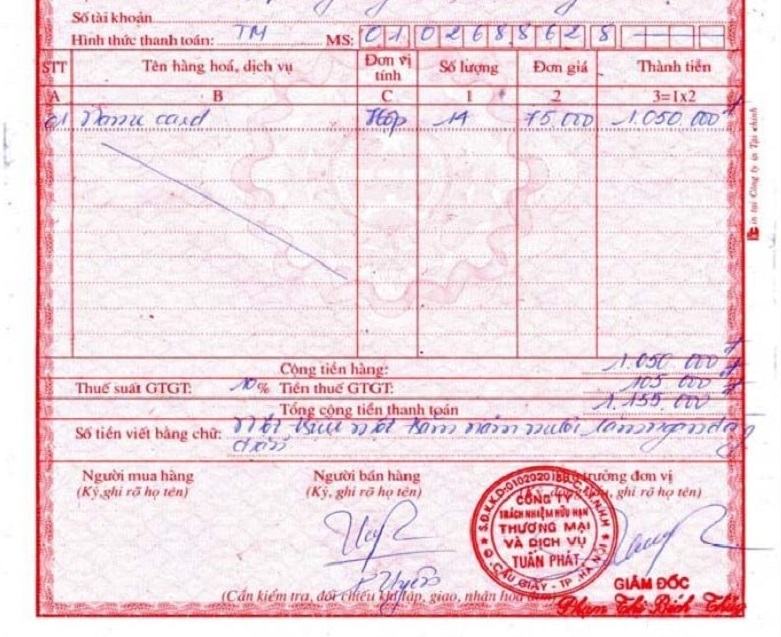 Số tài khoản
Hình thức thanh toán: TM MS: 0102688628
STT Tên hàng hoá, dịch vụ Đơn vị tính Số lượng Đơn giá Thành tiền
A B C 1 2 3=1x2
01 Name card Hộp 14 75.000 1.050.000đ
Cộng tiền hàng: 1.050.000đ
Thuế suất GTGT: 10% Tiền thuế GTGT: 105.000đ
Tổng cộng tiền thanh toán 1.155.000đ
Số tiền viết bằng chữ: Một triệu một trăm năm mươi lăm ngàn đồng
chẵn
Người mua hàng Người bán hàng trưởng đơn vị
(Ký,ghi rõ họ tên) (Ký, ghi rõ họ tên) ghi rõ họ tên)
CÔNG TY
TRÁCH NHIỆM HỮU HẠN
THƯƠNG MẠI
VÀ DỊCH VỤ
TUẤN PHÁT
CẦU GIẤY - TP. HÀ NỘI
GIÁM ĐỐC
(Cần kiểm tra, đối chiếu khi lập, giao, nhận hoá đơn)
Phạm Thị Bích Thủy
in tại Công ty in Tài chính